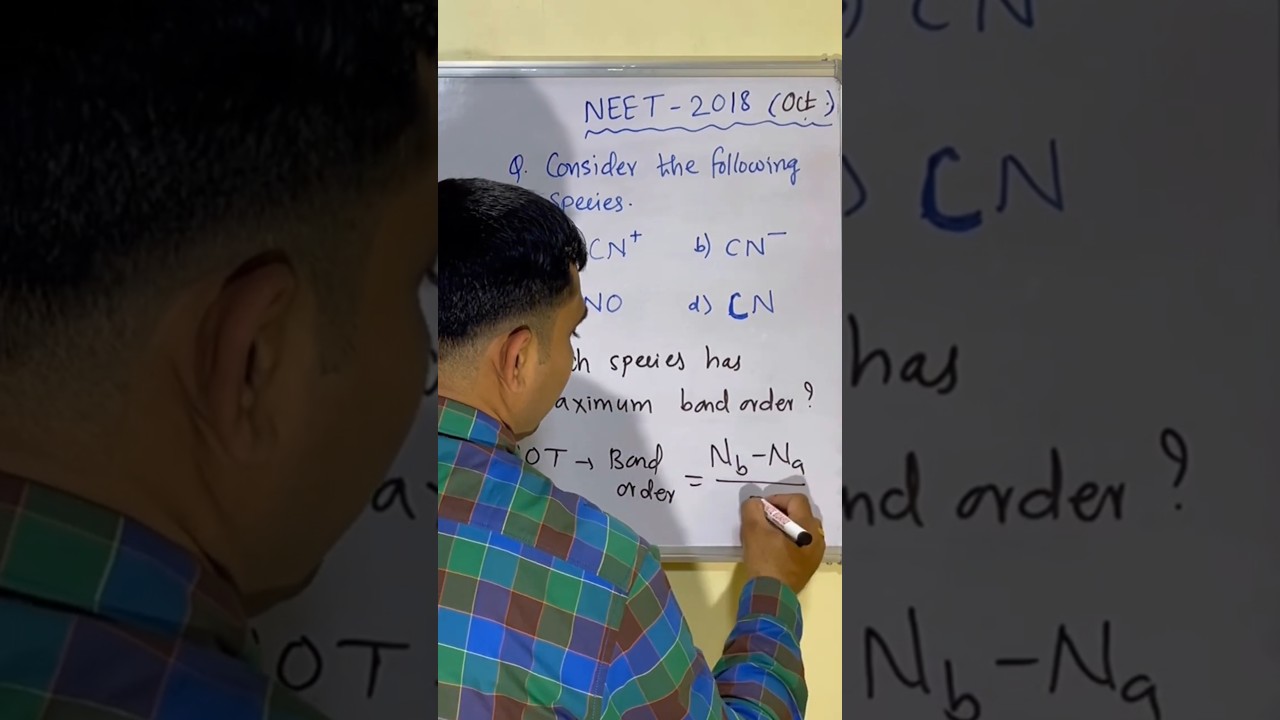 NEET - 2018 (Oct.)
Q. Consider the following
species.
CN⁺ b) CN⁻
NO d) CN
ch species has
aximum bond order?
OT → Bond order = N_b - N_a